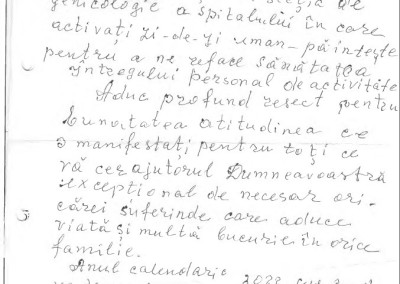 ginicologie a spitalului în care
activați zi-de-zi uman-părintește
pentru a ne reface sănătatea
întregului personal de activitate
Aduc profund resect pentru
bunătatea atitudinea ce
o manifestați pentru toți ce
vă cer ajutorul Dumneavoastră
excepțional de necesar ori-
cărei suferinde care aduce
viață și multă bucurie în orice
familie.
Anul calendaric